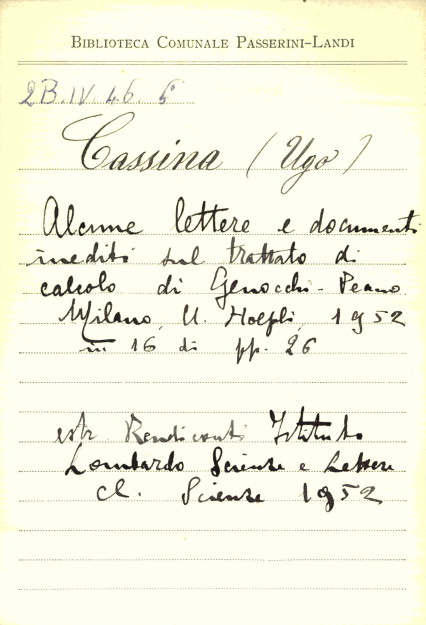 BIBLIOTECA COMUNALE PASSERINI-LANDI
2B.IV.46 6°
Cassina (Ugo)
Alcune lettere e documenti
inediti sul trattato di
calcolo di Genocchi - Peano.
Milano, U. Hoepli, 1952
in 16 di pp. 26
estr Rendiconti Istituto
Lombardo Scienze e Lettere
Cl. Scienze 1952